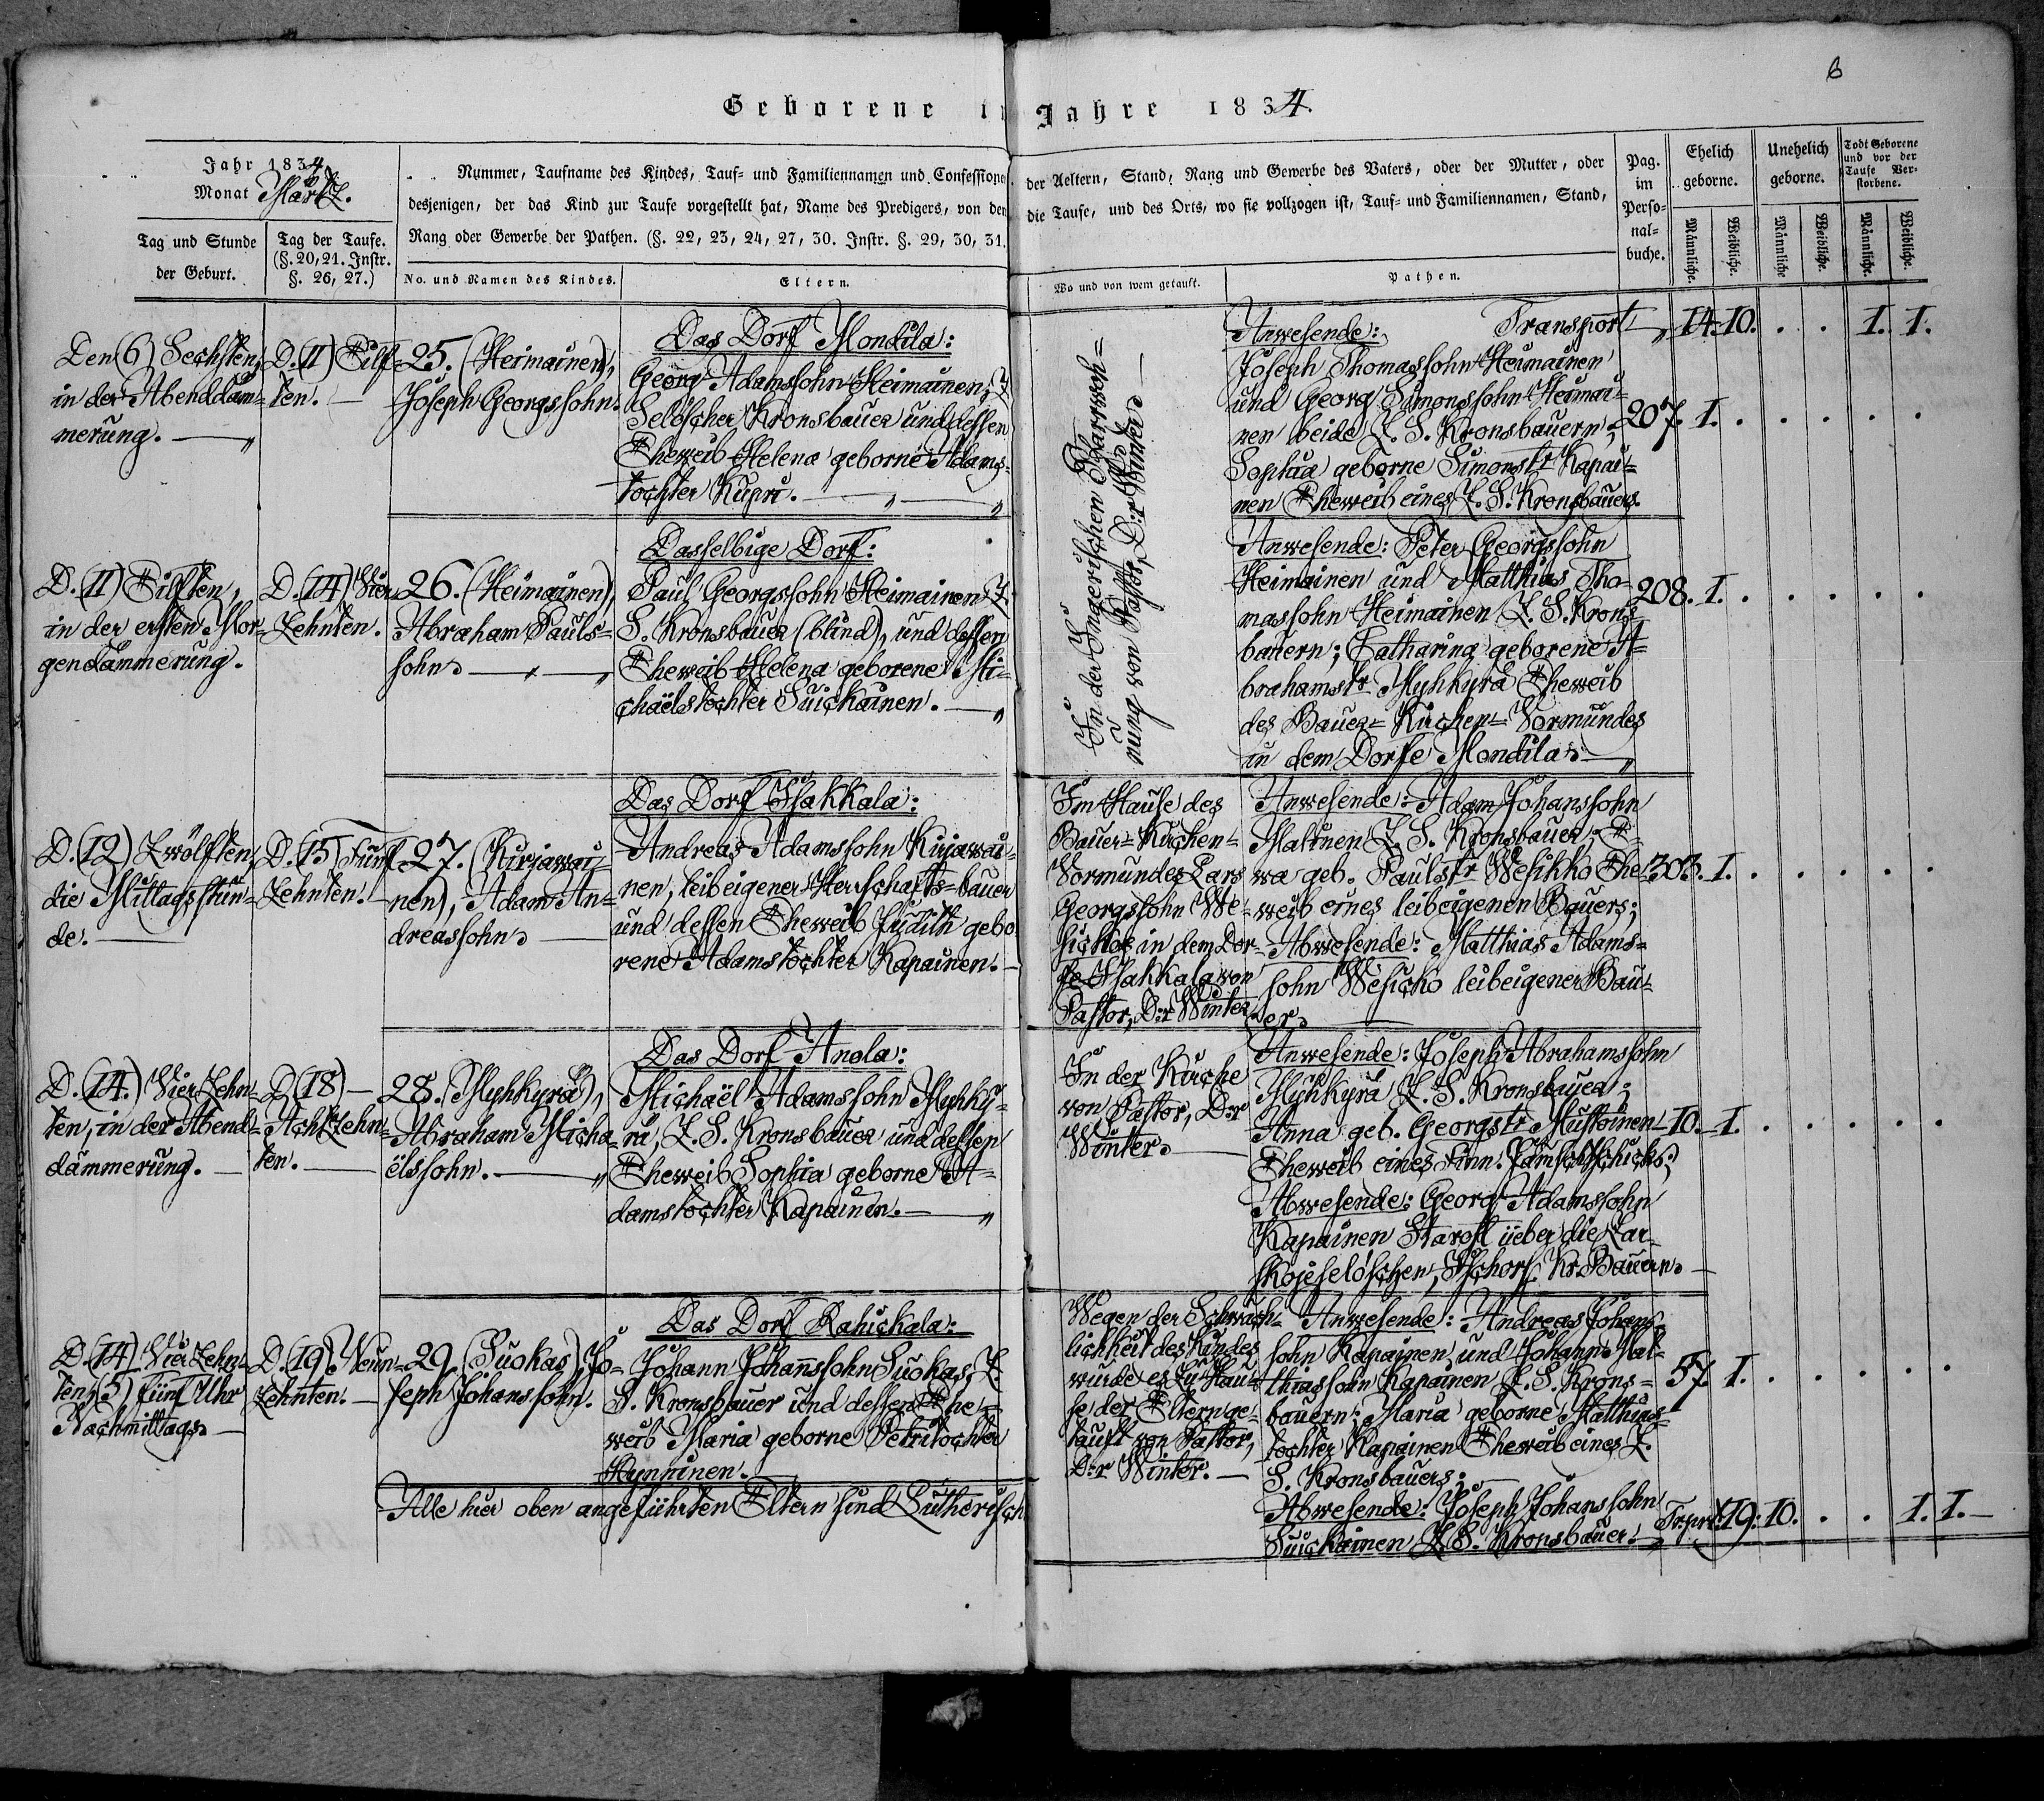 6
Geborene i Jahre 1834.
Jahr 1834
Monat Märtz.
Nummer, Taufname des Kindes, Tauf- und Familiennamen und Confession der Aeltern, Stand, Rang und Gewerbe des Vaters, oder der Mutter, oder
desjenigen, der das Kind zur Taufe vorgestellt hat, Name des Predigers, von dem die Taufe, und des Orts, wo sie vollzogen ist, Tauf- und Familiennamen, Stand,
Rang oder Gewerbe der Pathen. (§. 22, 23, 24, 27, 30. Instr. §. 29, 30, 31.
Tag und Stunde
der Geburt.
Tag der Taufe.
(§. 20, 21. Instr.
§. 26, 27.)
No. und Namen des Kindes.
Eltern.
Wo und von wem getauft.
Pathen.
Pag.
im
Perso-
nal-
buche.
Ehelich
geborne.
Unehelich
geborne.
Todt Geborene
und vor der
Taufe Ver-
storbene.
Männliche.
Weibliche.
Männliche
Weibliche.
Männliche.
Weibliche.
Transport 14. 10. . . 1. 1.
Den (6) Sechsten,
in der Abenddäm-
merung.
D. (11) Eilf-
ten.
25. (Heimainen),
Joseph Georgssohn.
Das Dorf Mondila:
Georg Adamssohn Heimainen, Z.
Selöscher Kronsbauer und dessen
Eheweib Helena geborne Adams-
tochter Kupri.
In der Ingerischen Pfarrwoh-
nung von Pastor, D:r Winter
Anwesende:
Joseph Thomassohn Heimainen
und Georg Simonssohn Heimai-
nen beide Z. S. Kronsbauern;
Sophia geborne Simonstr Kapai-
nen Eheweib eines Z. S. Kronsbauers.
207. 1. . . . . .
D. (11) Eilften,
in der ersten Mor-
gendämmerung.
D. (14) Vier-
zehnten.
26. (Heimainen),
Abraham Pauls-
sohn
Dasselbige Dorf:
Paul Georgssohn Heimainen Z.
S. Kronsbauer (blind), und dessen
Eheweib Helena geborene Mi-
chaëlstochter Suickainen.
Anwesende: Peter Georgssohn
Heimainen und Matthias Tho-
massohn Heimainen Z. S. Krons-
bauern; Catharina geborene A-
brahamstr Myhkyrä Eheweib
des Bauer-Kirchen-Vormundes
in dem Dorfe Mondila.
208. 1. . . . . .
D. (12) Zwölften,
die Mittagsstun-
de.
D. (15) Funf-
zehnten.
27. (Kirjawai-
nen), Adam An-
dreassohn
Das Dorf Hakkala:
Andreas Adamssohn Kirjawai-
nen, leibeigener Herschafts-bauer
und dessen Eheweib Judith gebo-
rene Adamstochter Kapainen.
Im Hause des
Bauer-Kirchen-
Vormundes Lars
Georgssohn We-
sicko in dem Dor-
fe Hakkala von
Pastor, D:r Winter
Anwesende: Adam Johanssohn
Mattnen Z. S. Kronsbauer; E-
wa geb. Paulstr Wesikko Ehe-
weib eines leibeigenen Bauers;
Abwesende: Matthias Adams-
sohn Wesicko leibeigener Bau-
er.
303. 1. . . . . .
D. (14.) Vierzehn-
ten, in der Abend-
dämmerung.
D. (18)
Achtzehn-
ten.
28. Myhkyrä),
Abraham Micha-
ëlssohn.
Das Dorf Anola:
Michaël Adamssohn Myhky-
rä, Z. S. Kronsbauer und dessen
Eheweib Sophia geborne A-
damstochter Kapainen.
In der Kirche
von Pastor, D:r
Winter.
Anwesende: Joseph Abrahamssohn
Myhkyrä Z. S. Kronsbauer;
Anna geb. Georgstr Mustoinen
Eheweib eines Finn. Jamschtschicks;
Abwesende: Georg Adamssohn
Kapainen Starost üeber die Zar-
skojeselöschen, Ischors. Kr. Bauern.
10. 1. . . . . .
D. (14) Vierzehn-
ten, (5) fünf Uhr
Nachmittags
D. (19) Neun-
zehnten.
29. (Suokas), Jo-
seph Johanssohn.
Das Dorf Rahickala:
Johann Johanssohn Suokas, Z.
S. Kronsbauer und dessen Ehe-
weib Maria geborne Petritochter
Hynninen.
Wegen der Schwäch-
lichkeit des Kindes
wurde es zu Hau-
se der Eltern ge-
tauft von Pastor,
D:r Winter.
Anwesende: Andreas Johans-
sohn Kapainen, und Johann Mat-
thiassohn Kapainen Z. S. Krons-
bauern; Maria geborne Matthias-
tochter Kapainen Eheweib eines Z.
S. Kronsbauers;
Abwesende: Joseph Johanssohn
Suickainen Z. S. Kronsbauer.
57. 1. . . . . .
Alle hier oben angeführten Eltern sind Lutherisch
Trprt. 19. 10. . . 1. 1.